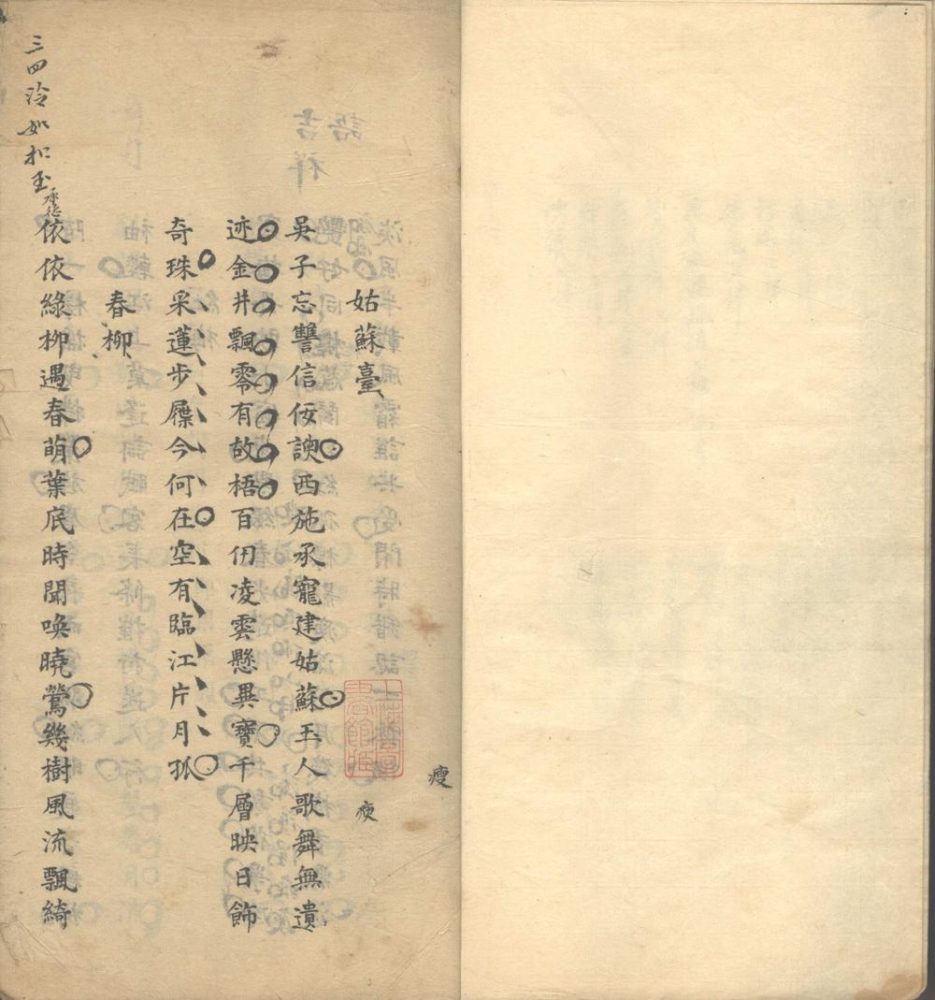 瘦
瘐
姑蘇臺
吳子忘讐信佞諛西施承寵建姑蘇玉人歌舞無遺
迹金井飄零有故梧百仞凌雲懸異寶千層映日飾
奇珠采蓮步屧今何在空有臨江片月孤
春柳
依依綠柳遇春萌葉底時聞喚曉鶯幾樹風流飄綺
三四泠如扣玉